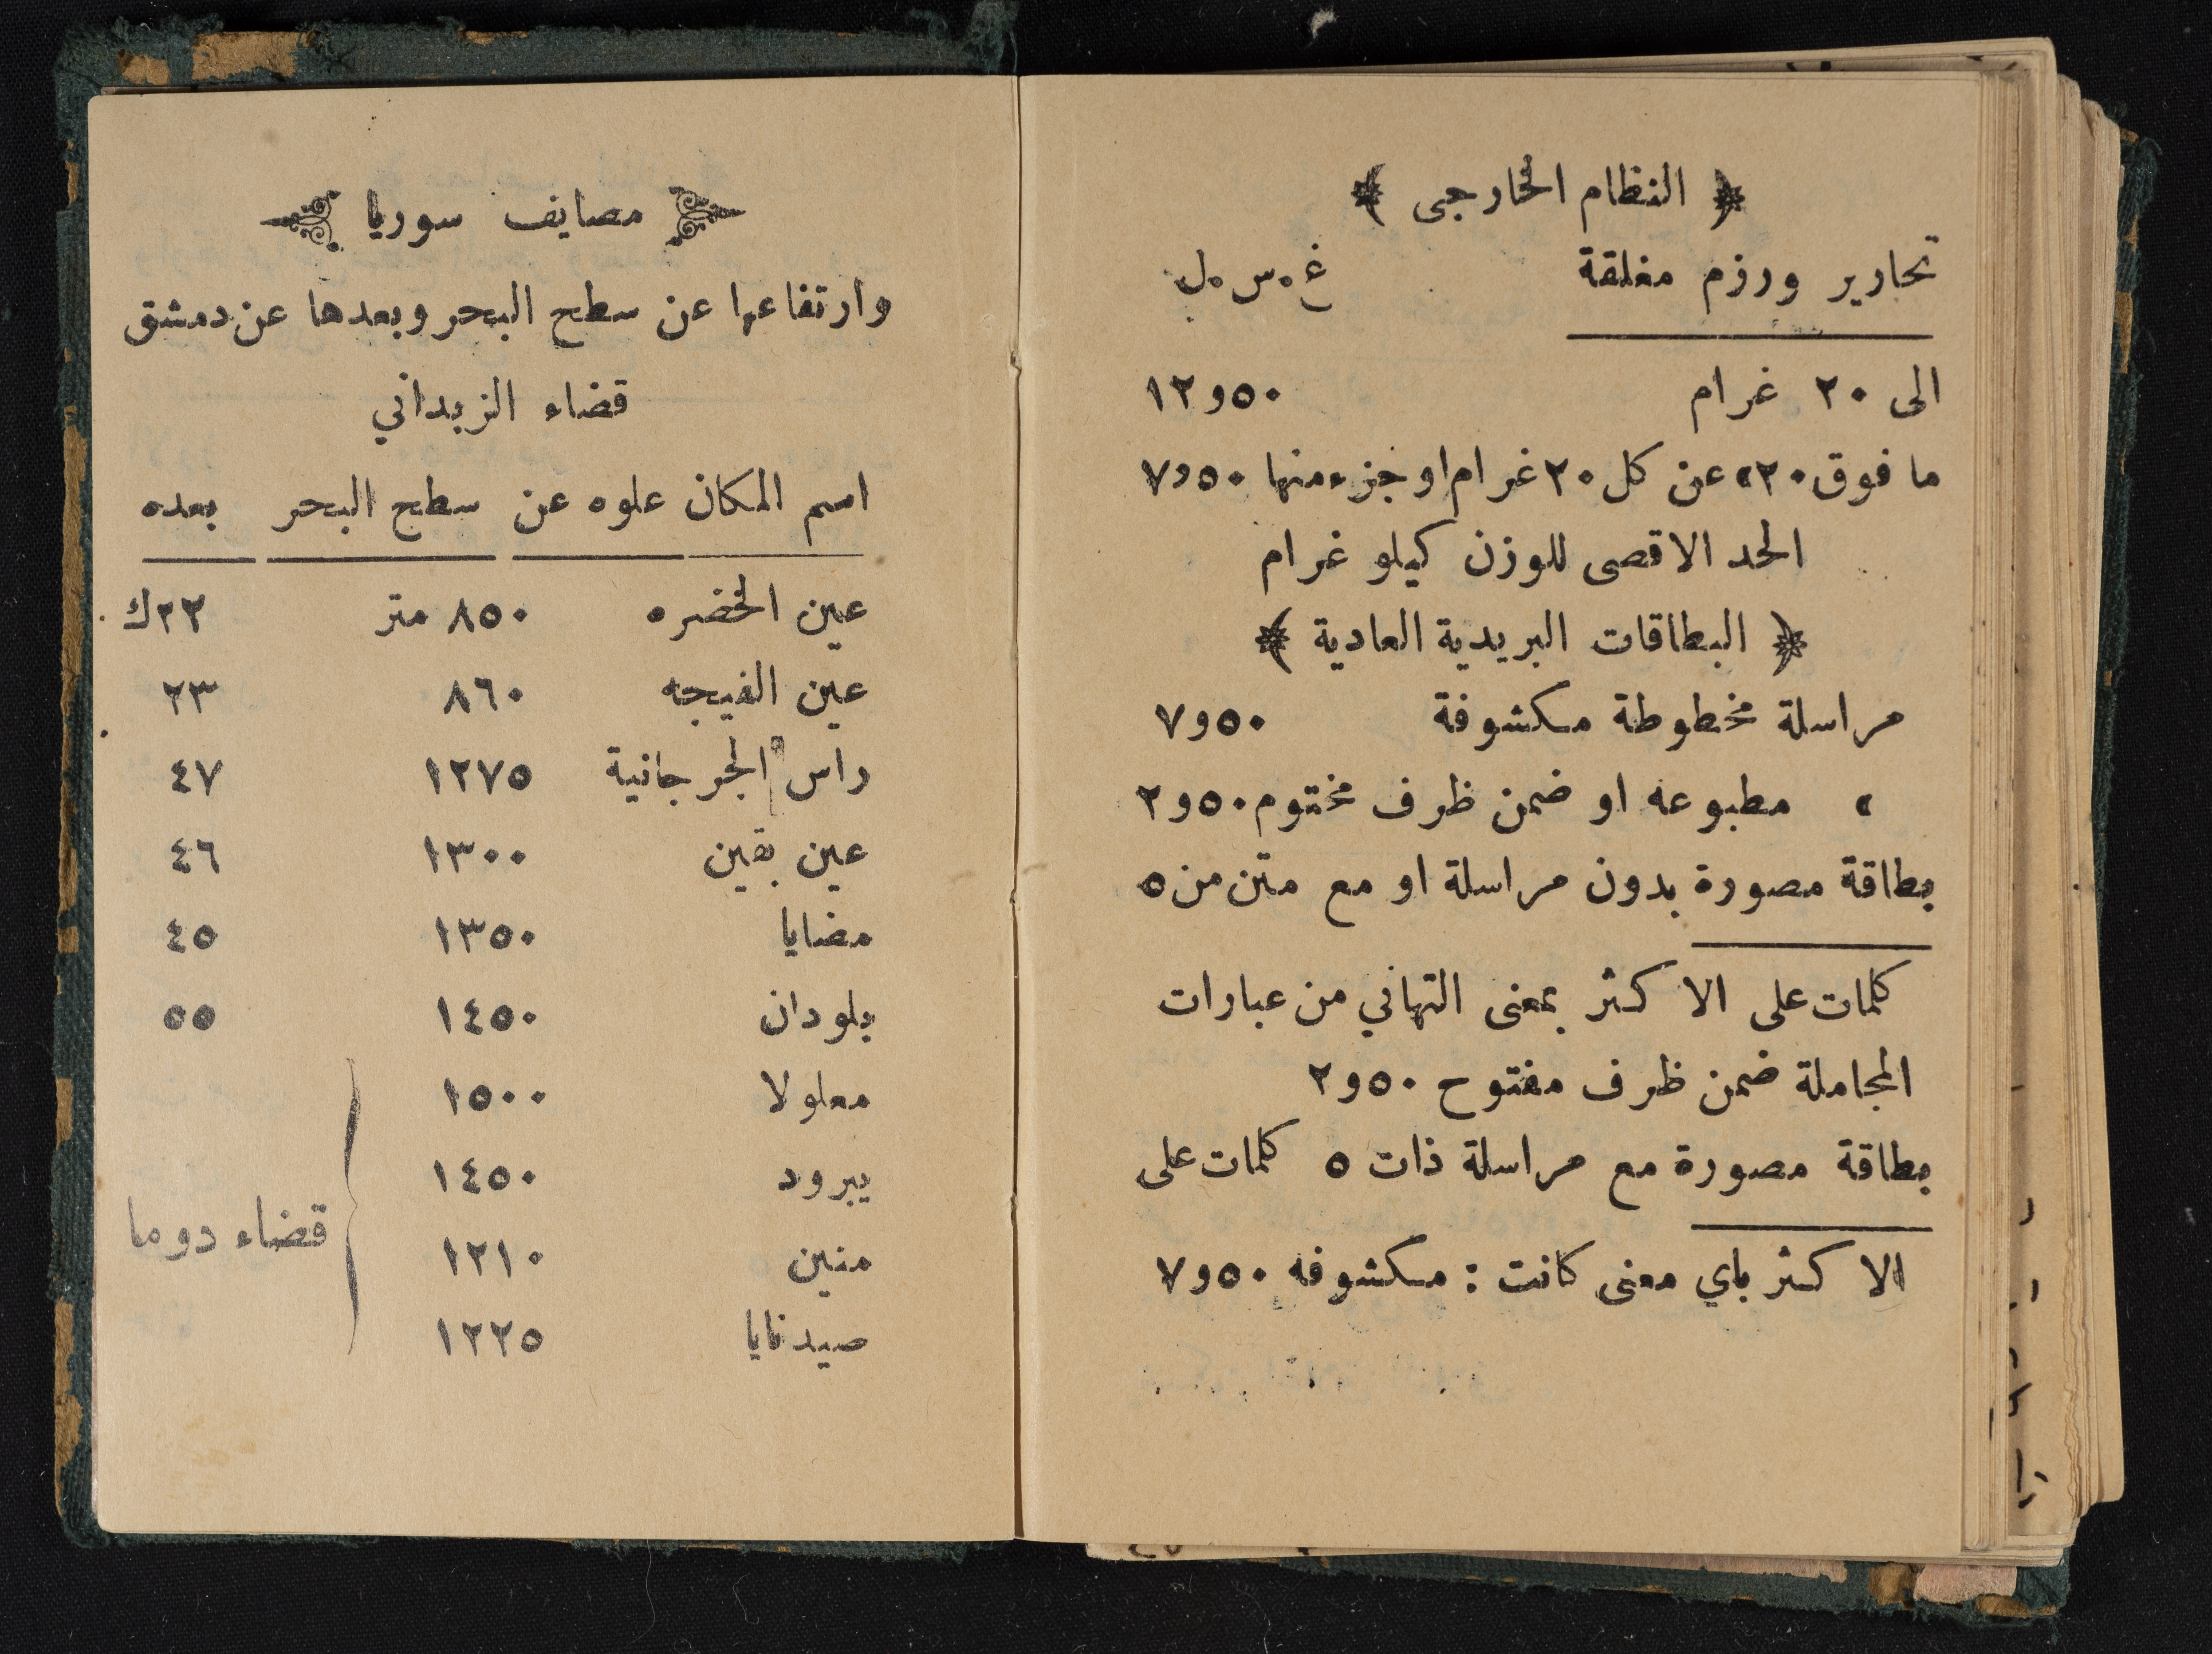 ﴿ النظام الخارجى ﴾
تحارير ورزم مغلقة غ.س.ل
الى ٢٠ غرام ١٢و٥٠
ما فوق ٢٠» عن كل ٢٠ غرام او جزء منها ٧و٥٠
الحد الاقصى للوزن كيلو غرام
﴿ البطاقات البريدية العادية ﴾
مراسلة مخطوطة مكشوفة ٧و٥٠
» مطبوعه او ضمن ظرف مختوم ٢و٥٠
بطاقة مصورة بدون مراسلة او مع متن من ٥
كلمات على الاكثر بمعنى التهاني من عبارات
المجاملة ضمن ظرف مفتوح ٢و٥٠
بطاقة مصورة مع مراسلة ذات ٥ كلمات على
الاكثر باي معنى كانت : مكشوفه ٧و٥٠
مصايف سوريا
وارتفاعها عن سطح البحر وبعدها عن دمشق
قضاء الزبداني
اسم المكان علوه عن سطح البحر بعده
عين الخضره ٨٥٠ متر ٢٢ك
عين الفيجه ٨٦٠ ٢٣
راس الجرجانية ١٢٧٥ ٤٧
عين بقين ١٣٠٠ ٤٦
مضايا ١٣٥٠ ٤٥
بلودان ١٤٥٠ ٥٥
معلولا ١٥٠٠
يبرود ١٤٥٠
قضاء دوما
منين ١٢١٠
صيدنايا ١٢٢٥